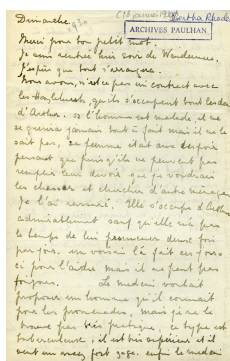 Dimanche.
(18 janvier 1930)
Bertha Rhodes
1930
ARCHIVES PAULHAN
Merci pour ton petit mot.
Je suis rentrée hier soir de
J'espère que tout s'arrangera.
Nous avons, n'est ce pas un contract avec
les qu'ils s'occupent tous les deux
d'Arthur. Or l'homme est malade et ne
se guérira jamais tout à fait mais il ne le
sait pas, sa femme était aux
pensant que puisqu'ils ne peuvent pas
remplir leur devoir que je voudrais
les chasser et chercher d'autre ménage
Je l'ai rassuré. Elle s'occupe d'Arthur
admirablement sauf qu'elle n'a pas
le temps de lui promener deux fois
par jour. un voisin l'a fait ces jours
ci pour l'aider mais il ne peut pas
toujours. Le medecin voulait
proposer un homme qu'il connait
pour les promenades, mais je ne le
trouve pas très pratique, ce type est
tuberculeux, il est très supérieur et il
veut un assez fort gage. enfin le medecin